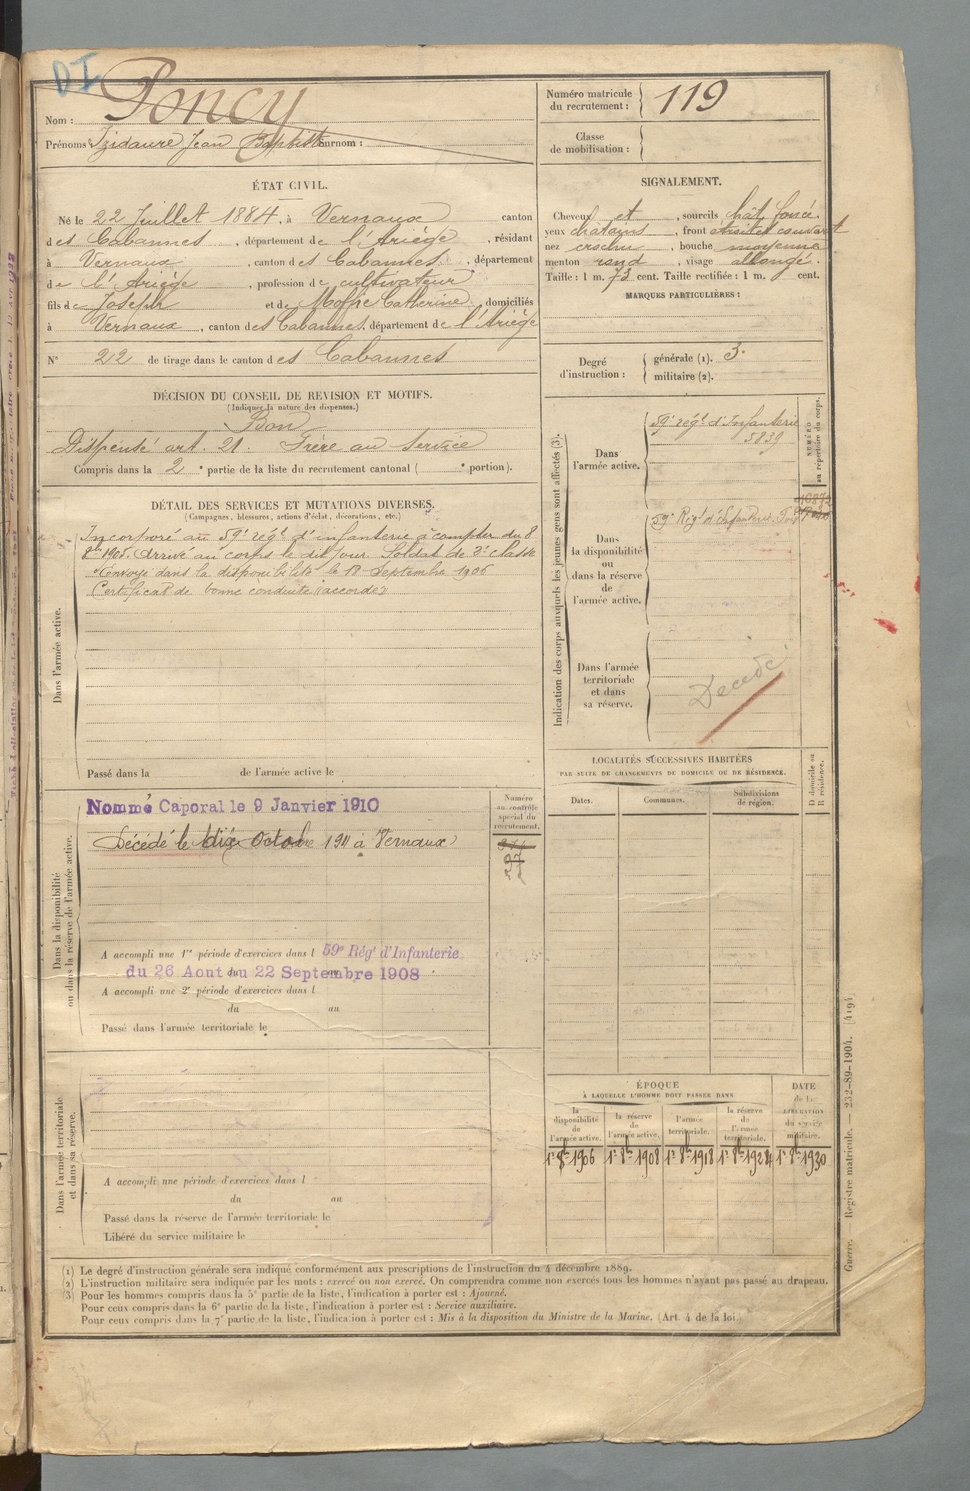 DI
Nom : Poncy
Prénoms : Izidaure Jean Baptiste Surnom :
Numéro matricule du recrutement : 119
Classe de mobilisation :
ÉTAT CIVIL.
Né le 22 Juillet 1884, à Vernaux canton
des Cabannes, département de l'Ariège, résidant
à Vernaux, canton des Cabannes, département
de l'Ariège, profession de cultivateur
fils de Joseph et de Catherine, domiciliés
à Vernaux, canton des Cabannes, département de l'Ariège
N° 22 de tirage dans le canton des Cabannes
SIGNALEMENT.
Cheveux et, sourcils chât. foncé.
yeux chatains, front étroit et couvert
nez crochu, bouche moyenne
menton rond, visage allongé.
Taille : 1 m. 73 cent. Taille rectifiée : 1 m. cent.
MARQUES PARTICULIÈRES :
Degré d'instruction : générale (1). 3.
militaire (2).
DÉCISION DU CONSEIL DE REVISION ET MOTIFS.
(Indiquer la nature des dispenses.)
Bon
Dispensé art. 21. Frère au Service
Compris dans la 2e partie de la liste du recrutement cantonal ( e portion).
DÉTAIL DES SERVICES ET MUTATIONS DIVERSES.
(Campagnes, blessures, actions d'éclat, décorations, etc.)
Dans l'armée active.
Incorporé au 59e régt d'infanterie à compter du 8
8bre 1905. Arrivé au corps le dit jour. Soldat de 2e classe
Envoyé dans la disponibilité le 18 Septembre 1906
Certificat de bonne conduite "accordé"
Passé dans la de l'armée active le
Indication des corps auxquels les jeunes gens sont affectés (3).
Dans l'armée active.
59e régt d'Infanterie
5839
NUMÉRO au répertoire du corps.
Dans la disponibilité ou dans la réserve de l'armée active.
59e Régt d'Infanterie
Dans l'armée territoriale et dans sa réserve.
Décédé
Dans la disponibilité ou dans la réserve de l'armée active.
Nommé Caporal le 9 Janvier 1910
Décédé le dix Octobre 1911 à Vernaux
Numéro au contrôle spécial du recrutement.
A accompli une 1re période d'exercices dans l 59e Régt d'Infanterie
du 26 Aout au 22 Septembre 1908
A accompli une 2e période d'exercices dans l
du au
Passé dans l'armée territoriale le
LOCALITÉS SUCCESSIVES HABITÉES
PAR SUITE DE CHANGEMENTS DE DOMICILE OU DE RÉSIDENCE.
Dates. Communes. Subdivisions de région.
D domicile ou R résidence.
Dans l'armée territoriale et dans sa réserve.
A accompli une période d'exercices dans l
du au
Passé dans la réserve de l'armée territoriale le
Libéré du service militaire le
ÉPOQUE
À LAQUELLE L'HOMME DOIT PASSER DANS
la disponibilité de l'armée active.
la réserve de l'armée active.
l'armée territoriale.
la réserve de l'armée territoriale.
DATE de la LIBÉRATION du service militaire.
1er 8bre 1906 1er 8bre 1908 1er 8bre 1918 1er 8bre 1924 1er 8bre 1930
(1) Le degré d'instruction générale sera indiqué conformément aux prescriptions de l'instruction du 4 décembre 1889.
(2) L'instruction militaire sera indiquée par les mots : exercé ou non exercé. On comprendra comme non exercés tous les hommes n'ayant pas passé au drapeau.
(3) Pour les hommes compris dans la 5e partie de la liste, l'indication à porter est : Ajourné.
Pour ceux compris dans la 6e partie de la liste, l'indication à porter est : Service auxiliaire.
Pour ceux compris dans la 7e partie de la liste, l'indication à porter est : Mis à la disposition du Ministre de la Marine. (Art. 4 de la loi.)
Guerre. Registre matricule. — 232-89-1904. [419].